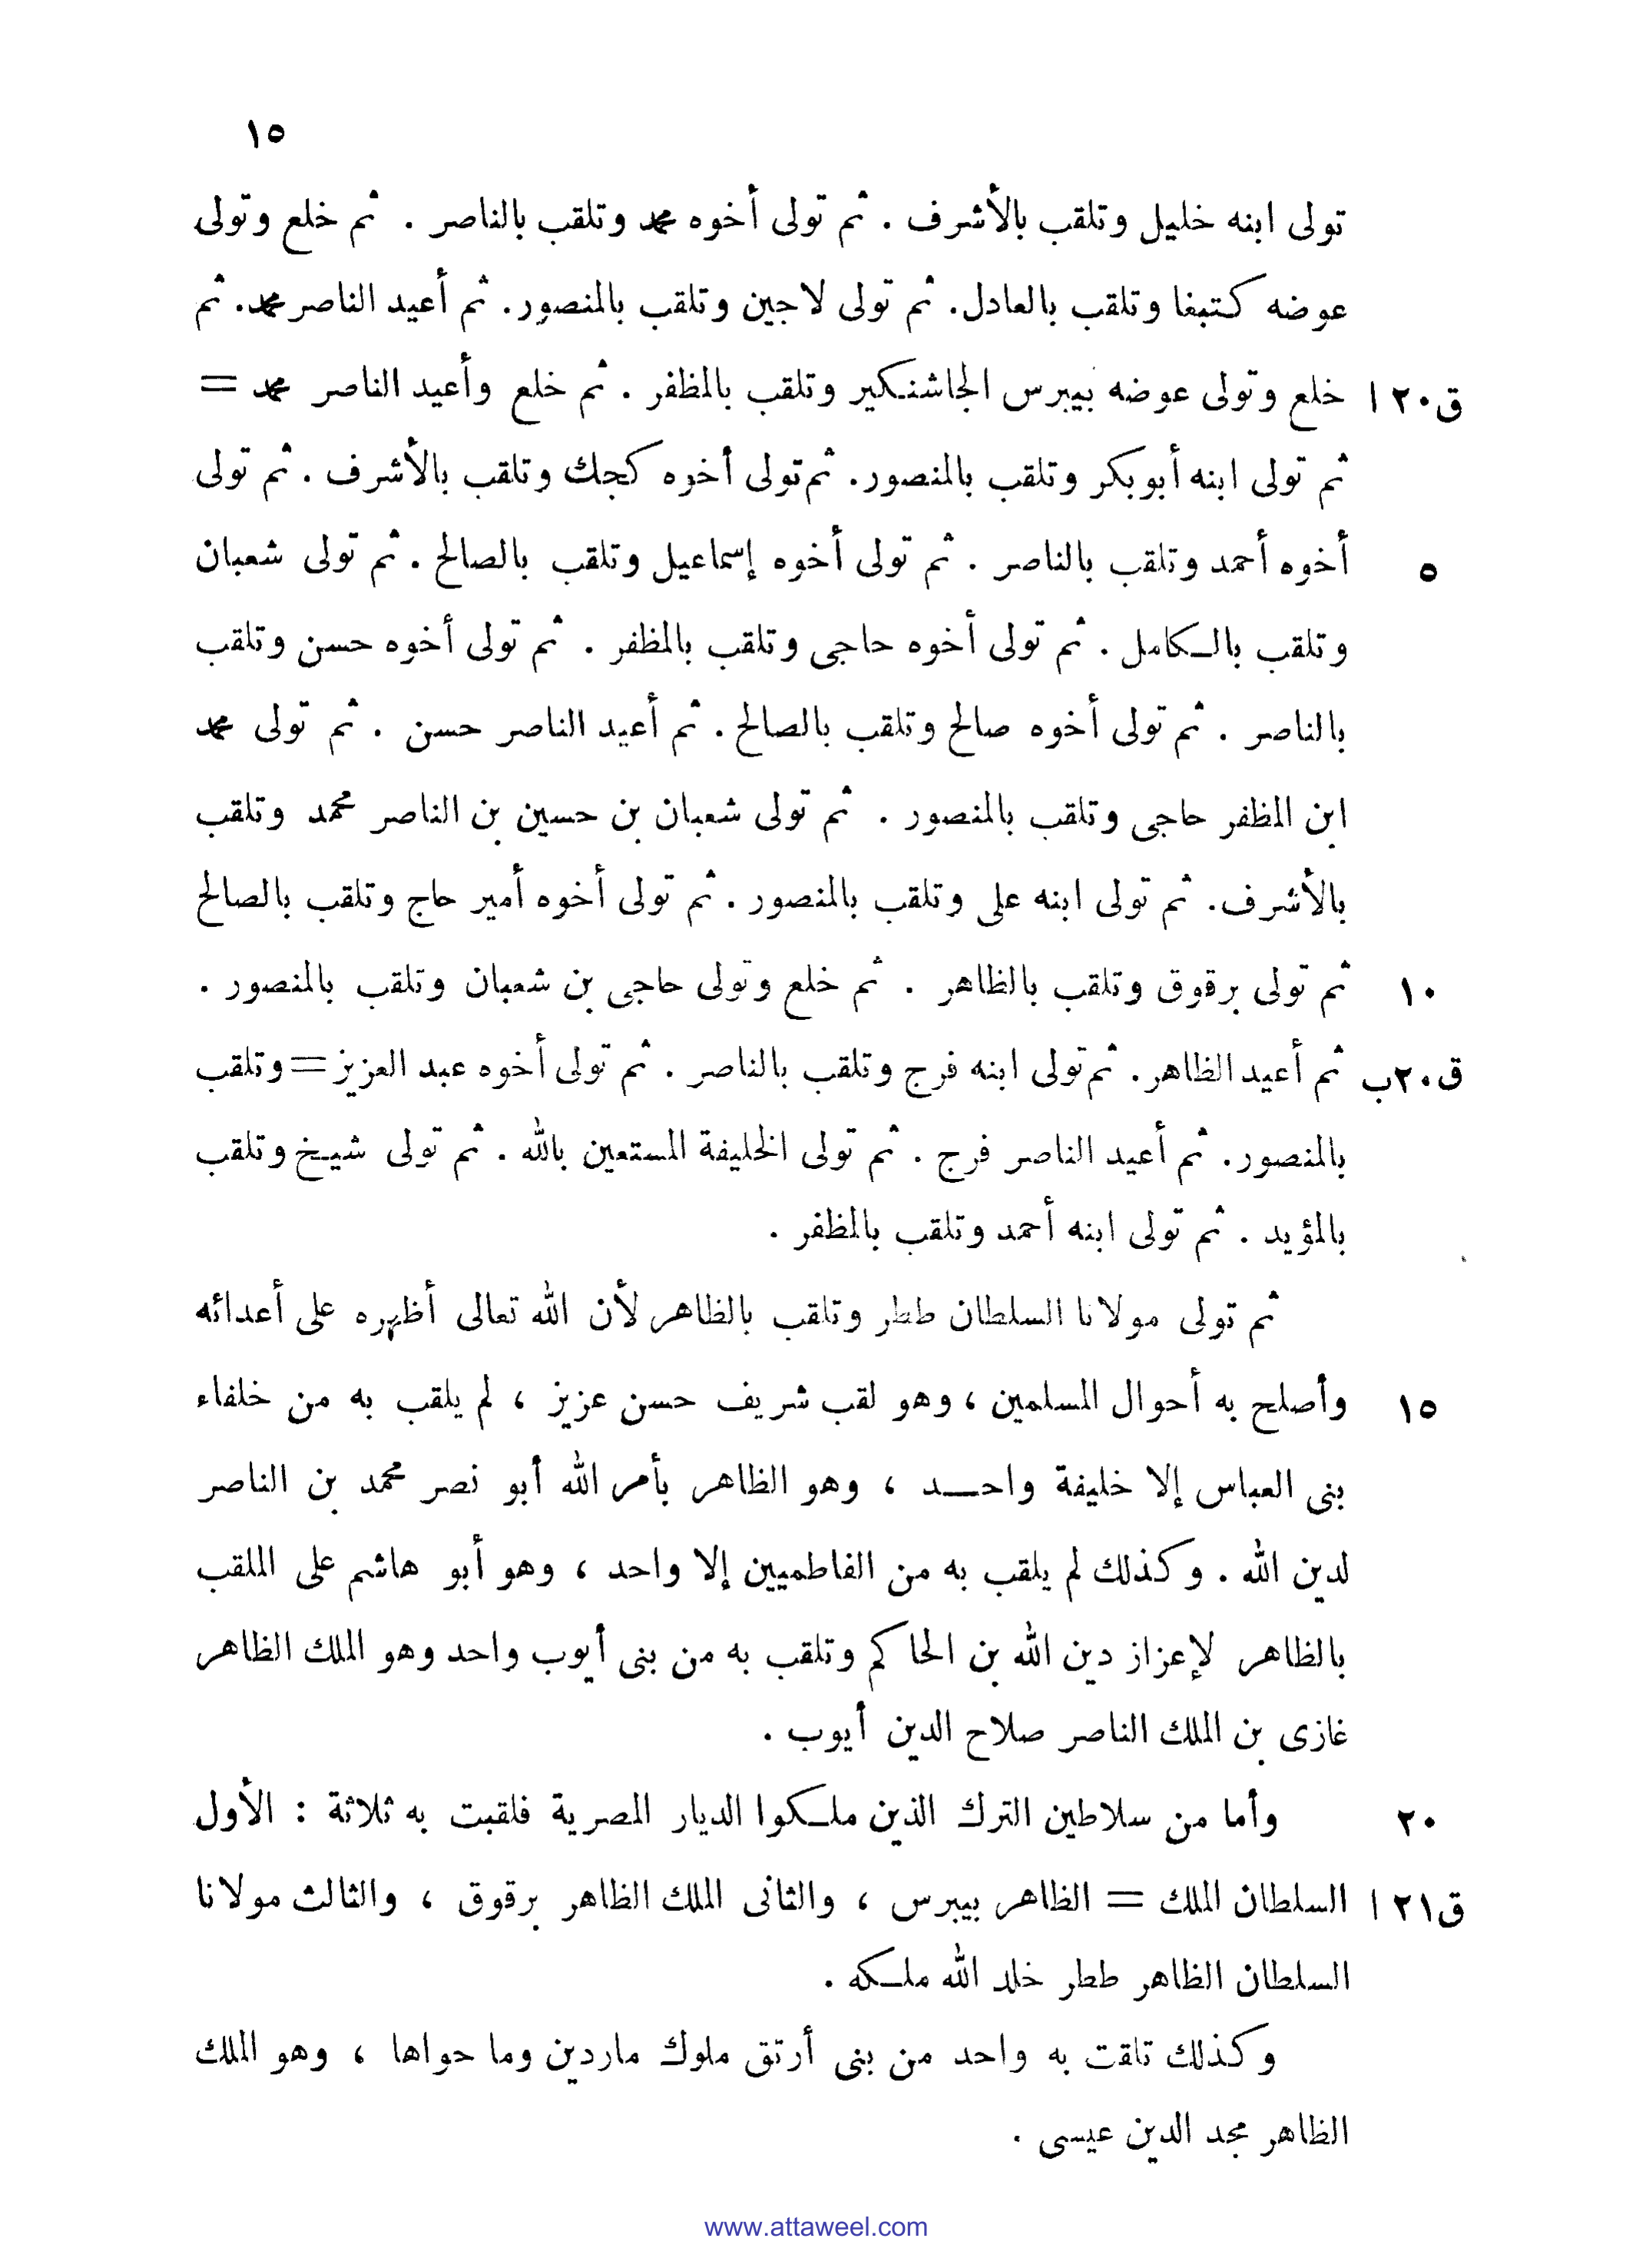 ١٥
تولى ابنه خليل وتلقب بالأشرف . ثم تولى أخوه محمد وتلقب بالناصر . ثم خلع وتولى
عوضه كتبغا وتلقب بالعادل. ثم تولى لاجين وتلقب بالمنصور. ثم أعيد الناصر محمد. ثم
ق٢٠ ا خلع وتولى عوضه بيبرس الجاشنكير وتلقب بالمظفر . ثم خلع وأعيد الناصر محمد =
ثم تولى ابنه أبو بكر وتلقب بالمنصور. ثم تولى أخوه كجك وتلقب بالأشرف . ثم تولى
٥ أخوه أحمد وتلقب بالناصر . ثم تولى أخوه إسماعيل وتلقب بالصالح . ثم تولى شعبان
وتلقب بالـكامل . ثم تولى أخوه حاجى وتلقب بالمظفر . ثم تولى أخوه حسن وتلقب
بالناصر . ثم تولى أخوه صالح وتلقب بالصالح . ثم أعيد الناصر حسن . ثم تولى محمد
ابن المظفر حاجى وتلقب بالمنصور . ثم تولى شعبان بن حسين بن الناصر محمد وتلقب
بالأشرف. ثم تولى ابنه على وتلقب بالمنصور . ثم تولى أخوه أمير حاج وتلقب بالصالح
١٠ ثم تولى برقوق وتلقب بالظاهر . ثم خلع وتولى حاجى بن شعبان وتلقب بالمنصور .
ق٢٠ب ثم أعيد الظاهر. ثم تولى ابنه فرج وتلقب بالناصر . ثم تولى أخوه عبد العزيز = وتلقب
بالمنصور. ثم أعيد الناصر فرج . ثم تولى الخليفة المستعين بالله . ثم تولى شيـخ وتلقب
بالمؤيد . ثم تولى ابنه أحمد وتلقب بالمظفر .
ثم تولى مولانا السلطان ططر وتلقب بالظاهر لأن الله تعالى أظهره على أعدائه
١٥ وأصلح به أحوال المسلمين ، وهو لقب شريف حسن عزيز ، لم يلقب به من خلفاء
بنى العباس إلا خليفة واحـــد ، وهو الظاهر بأمر الله أبو نصر محمد بن الناصر
لدين الله . وكذلك لم يلقب به من الفاطميين إلا واحد ، وهو أبو هاشم على الملقب
بالظاهر لإعزاز دين الله بن الحاكم وتلقب به من بنى أيوب واحد وهو الملك الظاهر
غازى بن الملك الناصر صلاح الدين أيوب .
٢٠ وأما من سلاطين الترك الذين ملـكوا الديار المصرية فلقبت به ثلاثة : الأول
ق٢١ ا السلطان الملك = الظاهر بيبرس ، والثانى الملك الظاهر برقوق ، والثالث مولانا
السلطان الظاهر ططر خلد الله ملـكه .
وكذلك تلقت به واحد من بنى أرتق ملوك ماردين وما حواها ، وهو الملك
الظاهر مجد الدين عيسى .
www.attaweel.com